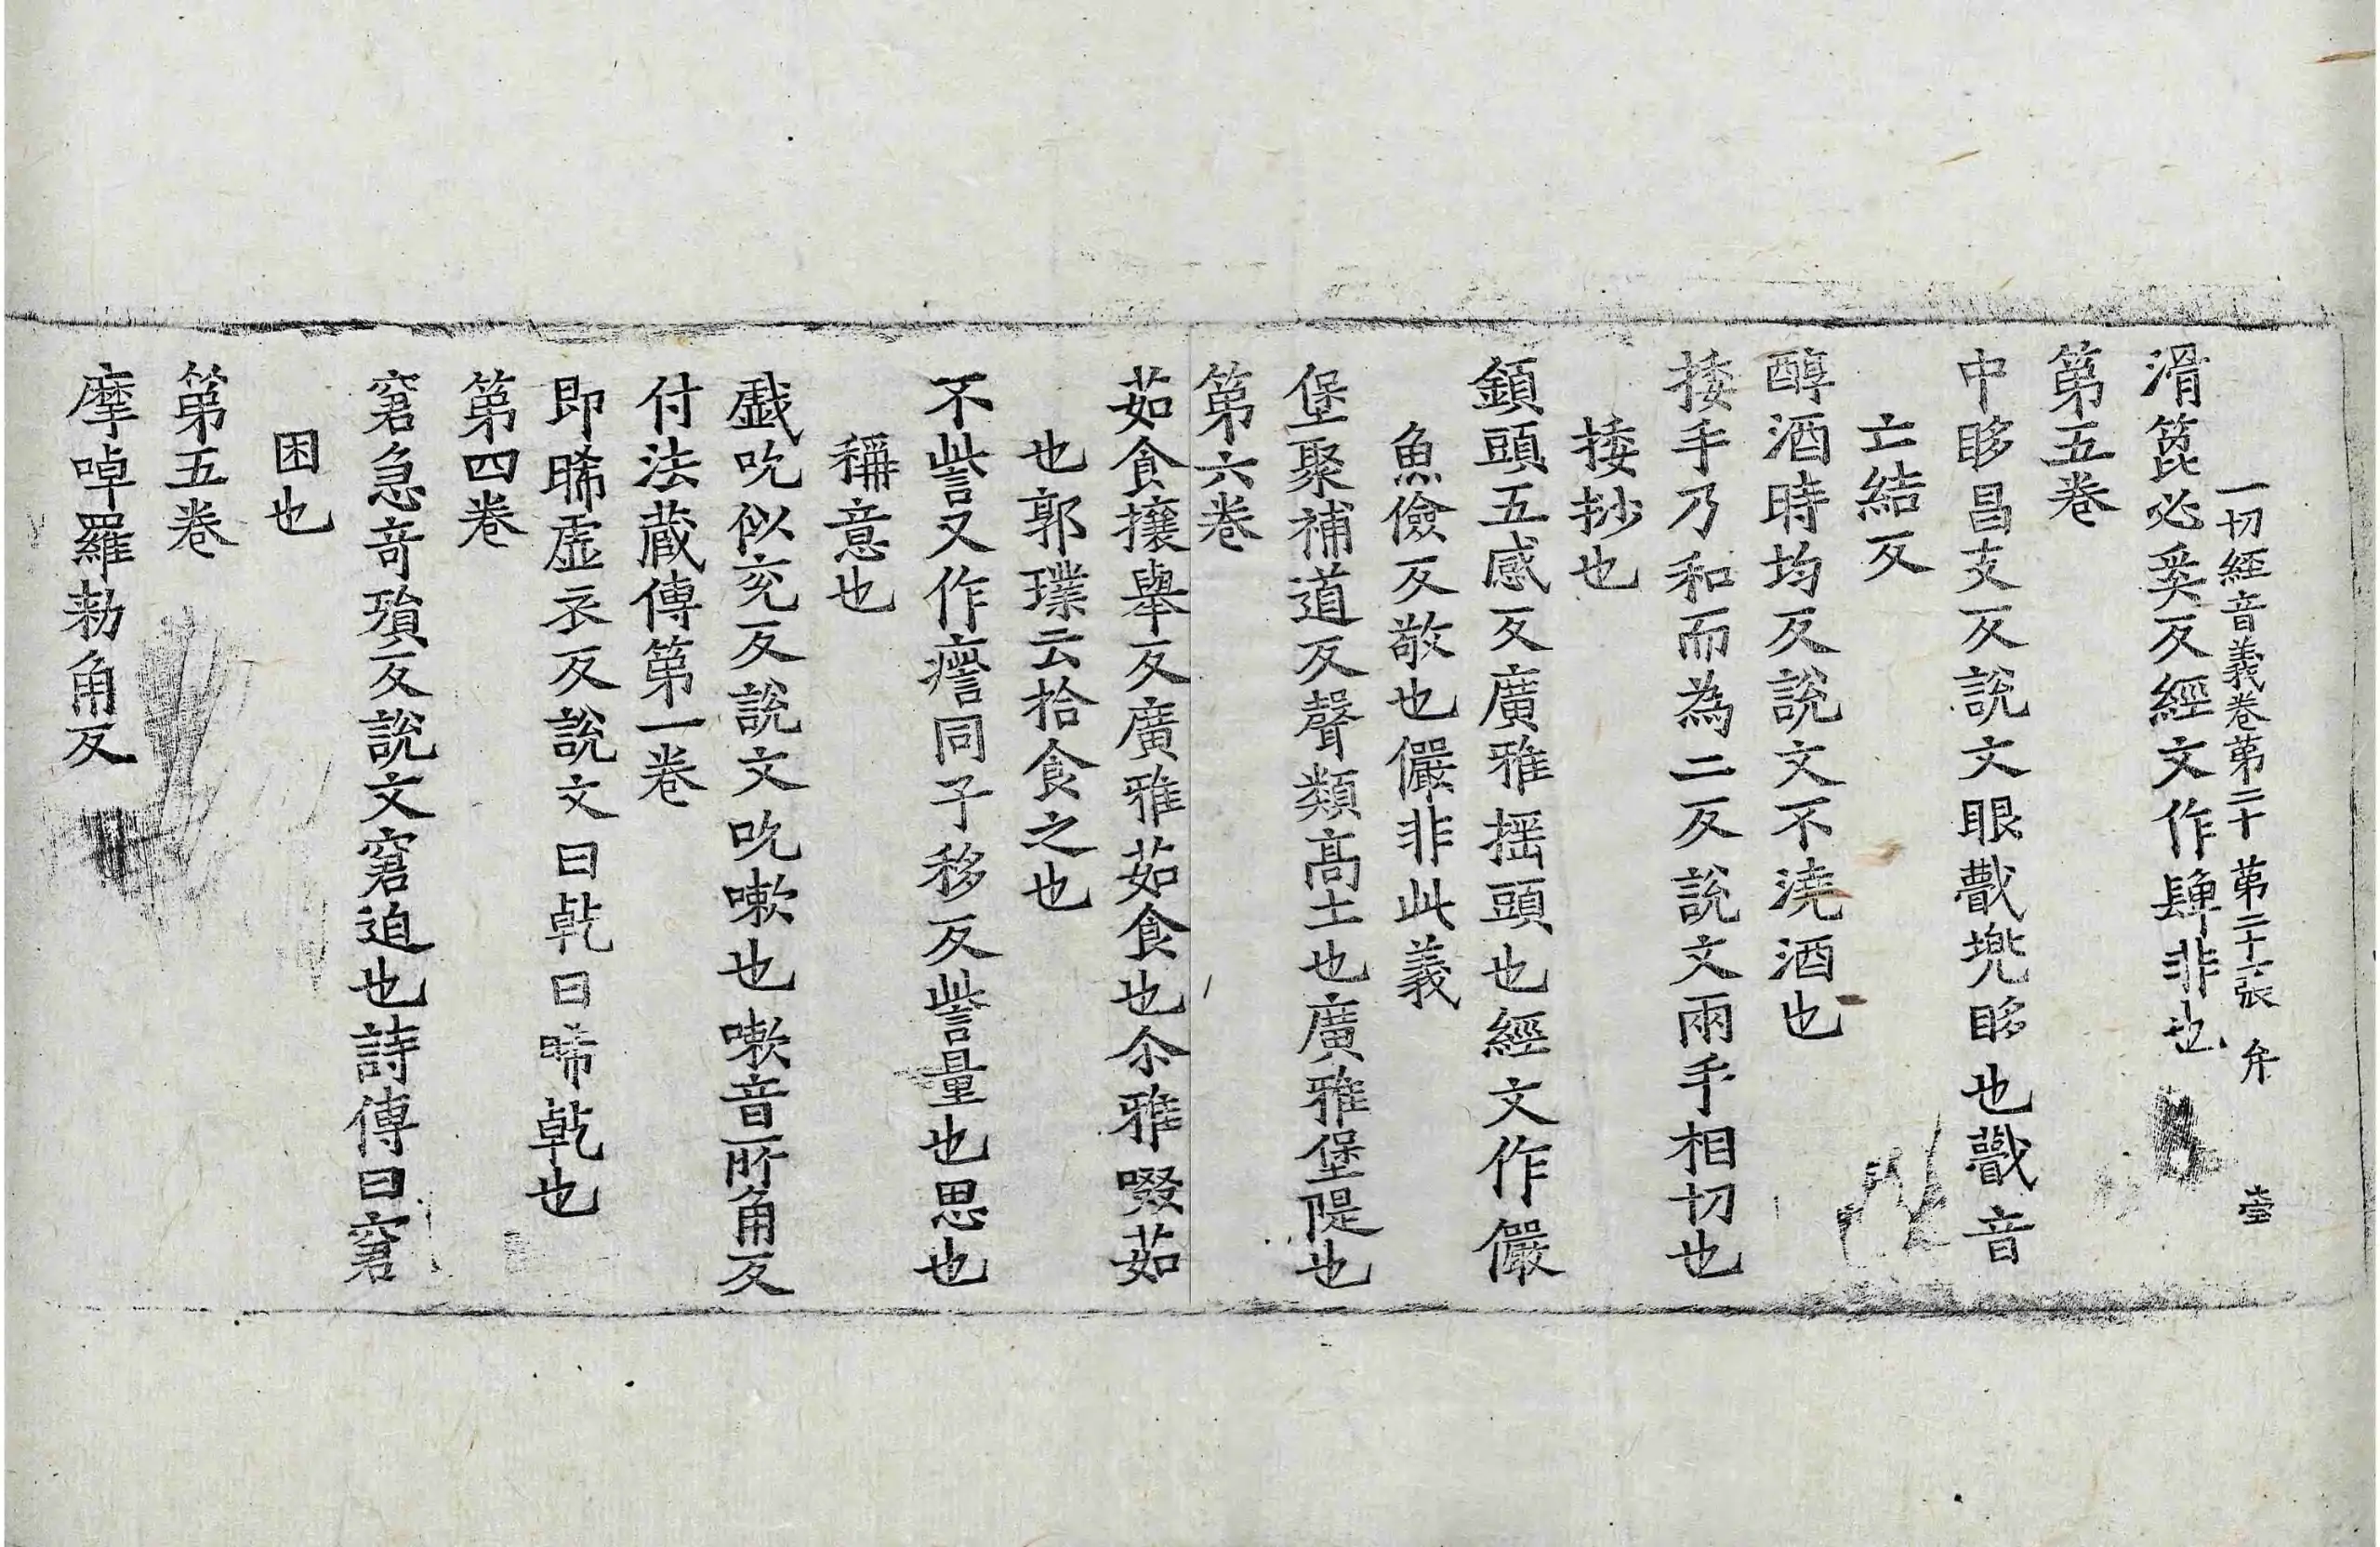 一切經音義卷第二十 第二十六張 弁 壹
滑箆必奚反經文作䏶非也
第五卷
中眵昌支反說文眼䁾兠眵也䁾音
亡結反
醇酒時均反說文不澆酒也
捼手乃和而為二反說文兩手相切也
捼抄也
顉頭五感反廣雅搖頭也經文作儼
魚儉反敬也儼非此義
堡聚補道反聲類高土也廣雅堡隄也
第六卷
茹食攘舉反廣雅茹食也尒雅啜茹
也郭璞云拾食之也
不訾又作𧩰同子移反訾量也思也
稱意也
戱吮似兖反說文吮嗽也嗽音所角反
付法藏傳第一卷
即晞虛衣反說文曰乾曰晞乾也
第四卷
窘急奇殞反說文窘迫也詩傳曰窘
困也
第五卷
摩啅羅勑角反